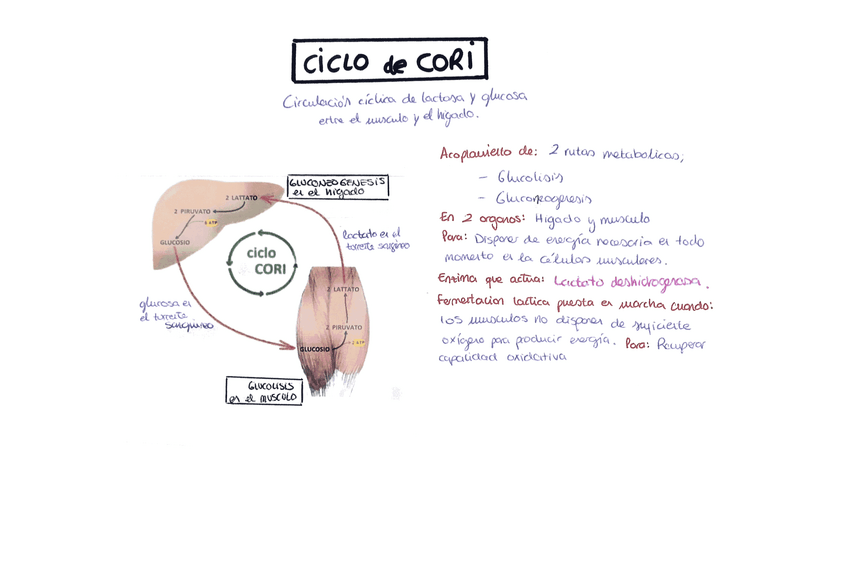 CICLO de CORI
Circulación cíclica de lactosa y glucosa
entre el musculo y el hígado.
GLUCONEOGENESIS
en el hígado
2 LATTATO
2 PIRUVATO
6 ATP
GLUCOSIO
ciclo
CORI
lactato en el
torrente sanguíneo
glucosa en
el torrente
sanguíneo
2 LATTATO
2 PIRUVATO
2 ATP
GLUCOSIO
GLUCOLISIS
en el MUSCULO
Acoplamiento de: 2 rutas metabolicas;
- Glucolisis
- Gluconeogenesis
En 2 organos: Higado y musculo
Para: Disponer de energía necesaria en todo
momento en la células musculares.
Enzima que actua: Lactato deshidrogenasa.
Fermentacion lactica puesta en marcha cuando:
los musculos no disponen de suficiente
oxígeno para producir energía. Para: Recuperar
capacidad oxidativa